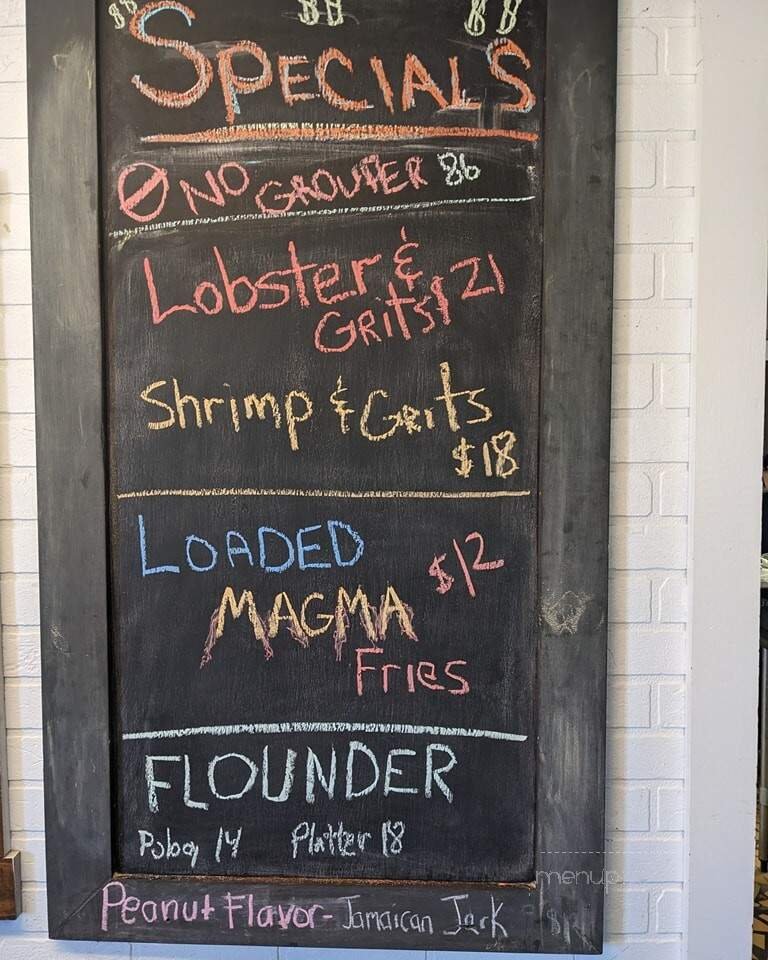 $$ $$ $$
SPECIALS
NO GROUPER 86
Lobster &
GRits $21
Shrimp & Grits
$18
LOADED
$12
MAGMA
Fries
FLOUNDER
Poboy 14 Platter 18
menupix
Peanut Flavor- Jamaican Jerk